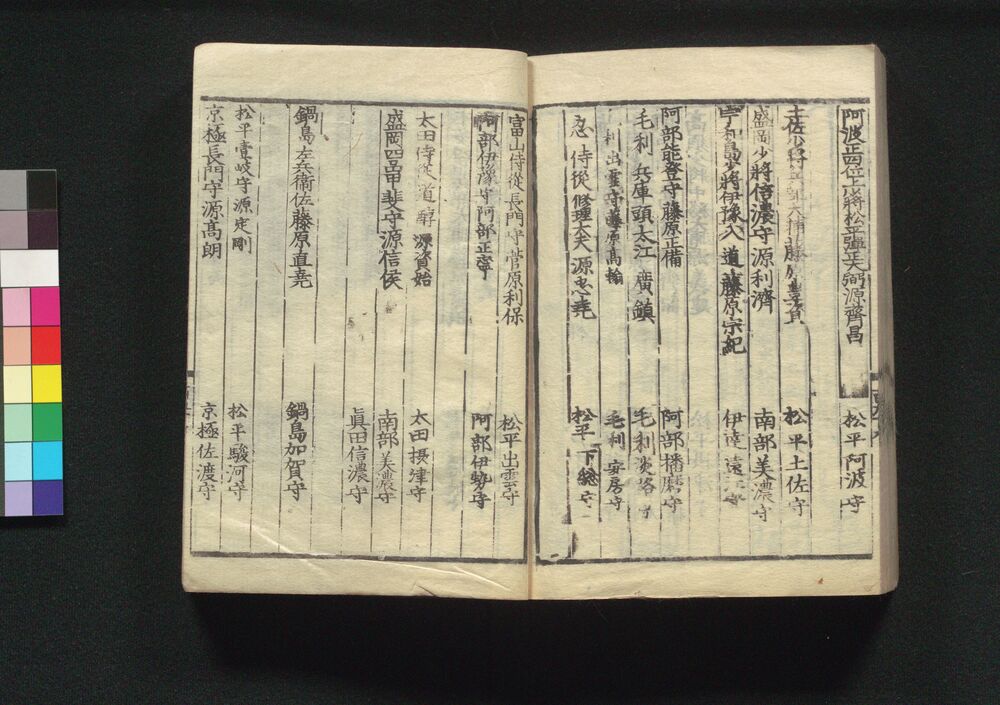 阿波正四位上少將松平彈正大弼源齊昌　松平阿波守
土佐少將　藤原豊資　松平土佐守
盛岡少將信濃守源利濟　南部美濃守
宇和島少將伊豫入道藤原宗紀　伊達遠江守
阿部能登守藤原正備　阿部播磨守
毛利兵庫頭大江廣鎮　毛利淡路守
利出雲守藤原高翰　毛利安房守
忍侍從修理大夫源忠堯　松平下総守
富山侍從長門守菅原利保　松平出雲守
阿部伊豫守阿部正寧　阿部伊勢守
太田侍從道醇源資始　太田摂津守
盛岡四品甲斐守源信侯　南部美濃守
眞田信濃守
鍋島左兵衛佐藤原直堯　鍋島加賀守
松平壹岐守源定剛　松平駿河守
京極長門守源高朗　京極佐渡守